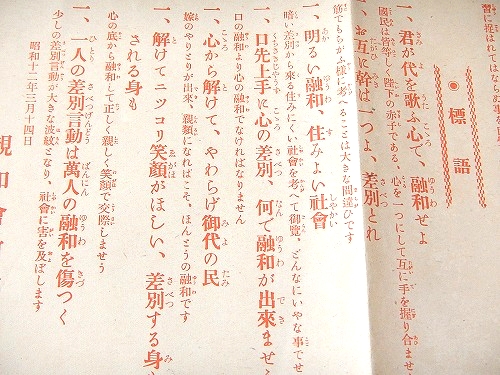 習に捉はれてはならぬ事を
標語
一、君が代を歌ふ心で、融和せよ
國民は皆等しく陛下の赤子である、心を一つにして互に手を握り合ませ
お互に幹は一つよ、差別とれ
筋でもちがふ様に考へることは大きな間違ひです
一、明るい融和、住みよい社會
暗い差別から來る住みにくい社會を考へて御覽、どんなにいやな事でせ
一、口先上手に心の差別、何で融和が出來ませ
口の融和より心の融和でなければなりません
一、心から解けて、やわらげ御代の民
嫁のやりとりが出來、親類になればこそ、ほんとうの融和です
一、解けてニツコリ笑顔がほしい、差別する身も
される身も
心の底から融和して正しく親しく笑顔で交際しませう
一、一人の差別言動は萬人の融和を傷つく
少しの差別言動が大きな波紋となり、社會に害を及ぼします
昭和十二年三月十四日
親和會